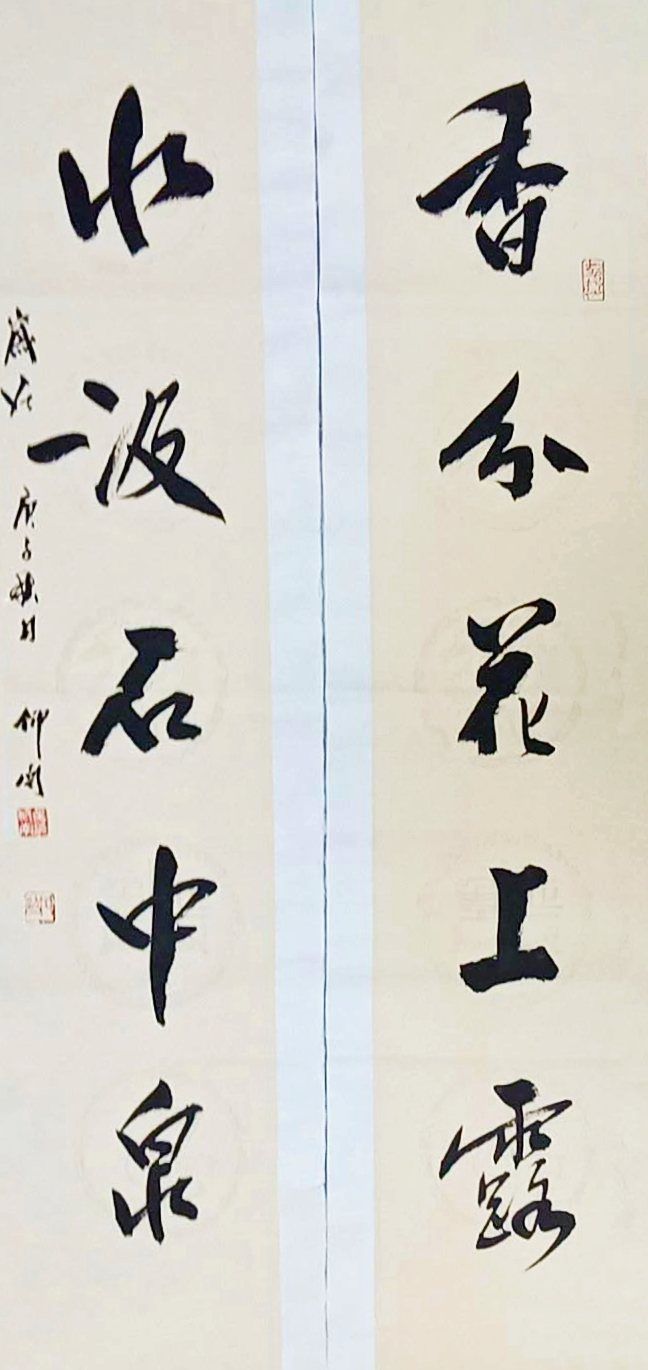 香分花上露
水汲石中泉
岁在庚子秋月
仰南